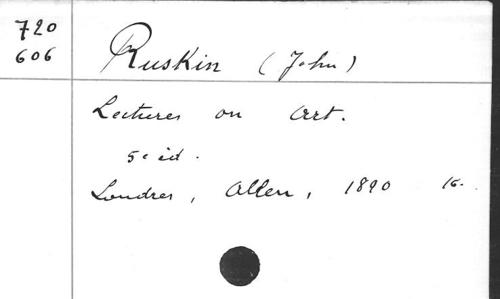 720
606
Ruskin (John)
Lectures on Art.
5e éd.
Londres, Allen, 1890 16.